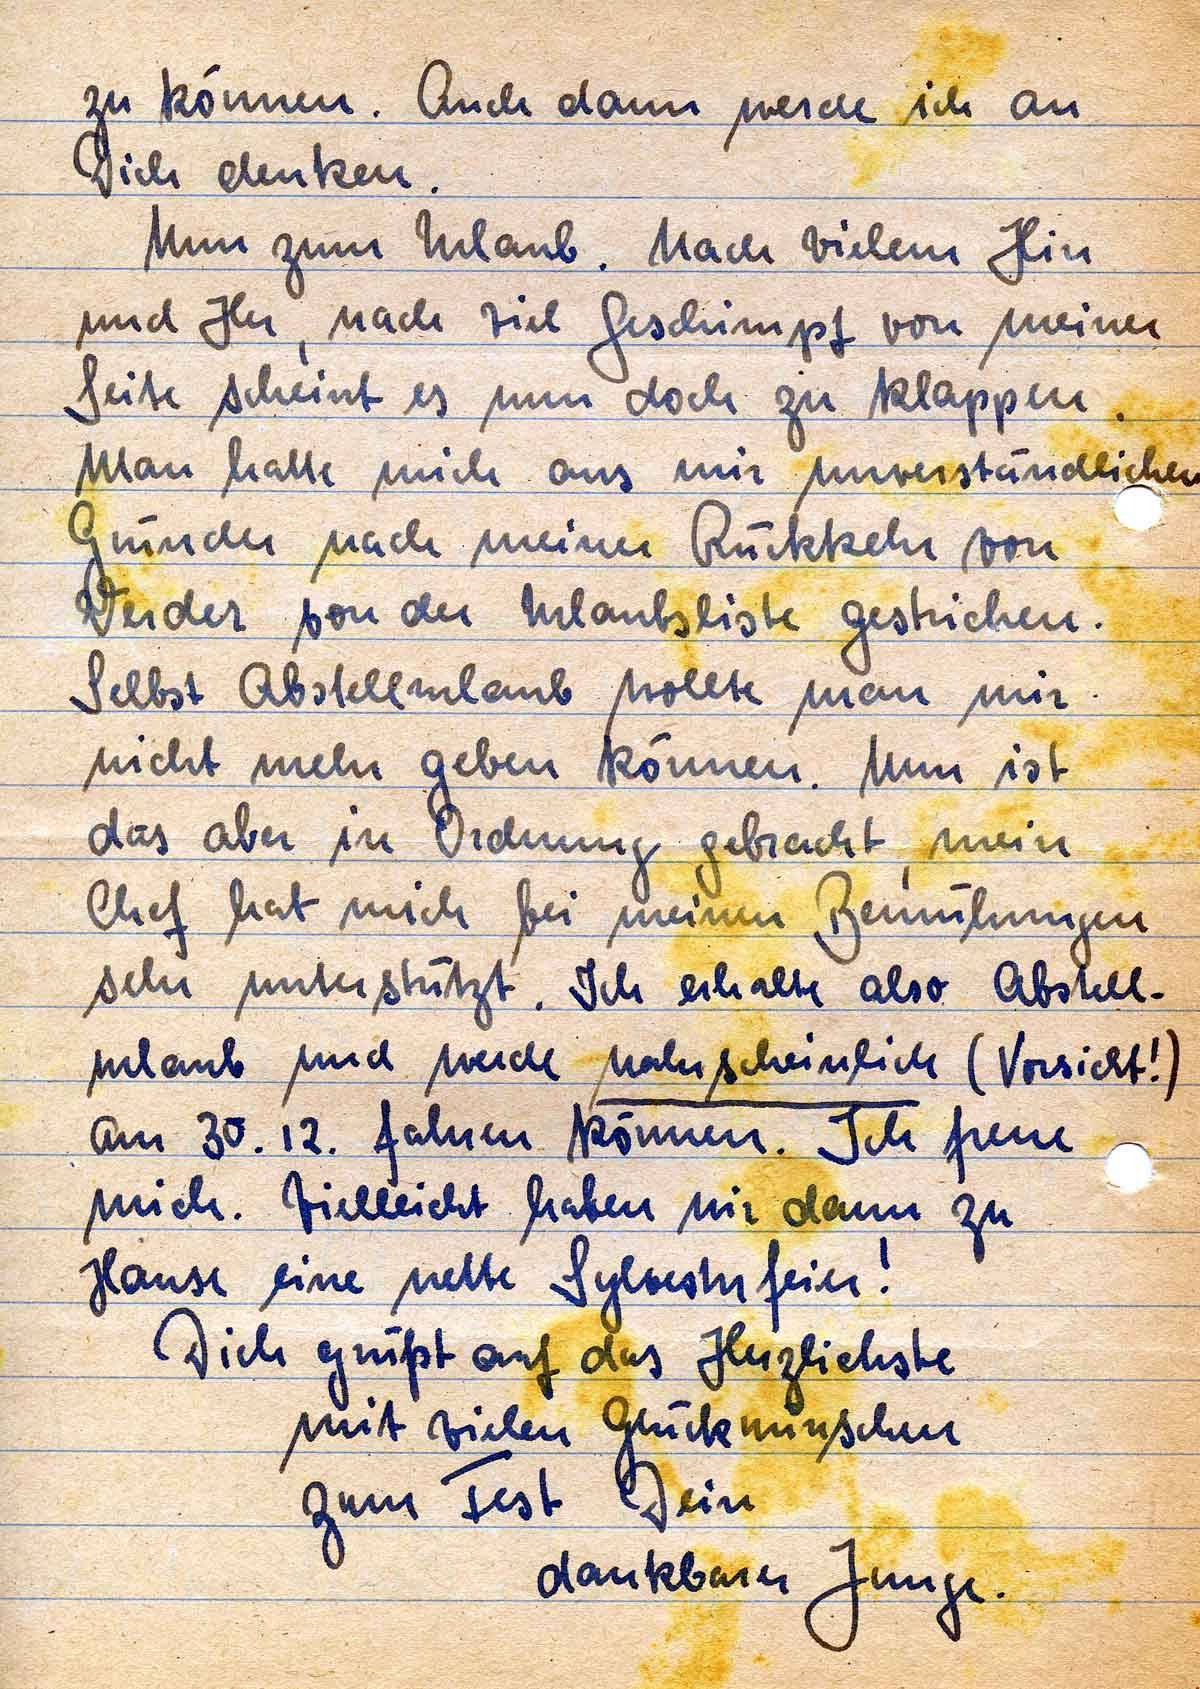 zu können. Auch dann werde ich an
Dich denken.
Nun zum Urlaub. Nach vielem Hin
und Her, nach viel Geschimpf von meiner
Seite scheint es nun doch zu klappen.
Man hatte mich aus mir unverständlichen
Gründen nach meiner Rückkehr von
Werder von der Urlaubsliste gestrichen.
Selbst Abstellurlaub wollte man mir
nicht mehr geben können. Nun ist
das aber in Ordnung gebracht, mein
Chef hat mich bei meinen Bemühungen
sehr unterstützt. Ich erhalte also Abstell-
urlaub und werde wahrscheinlich (Vorsicht!)
am 30.12. fahren können. Ich freue
mich. Vielleicht haben wir dann zu
Hause eine nette Sylvesterfeier!
Dich grüßt auf das Herzlichste
mit vielen Glückwünschen
zum Fest Dein
dankbarer Junge.